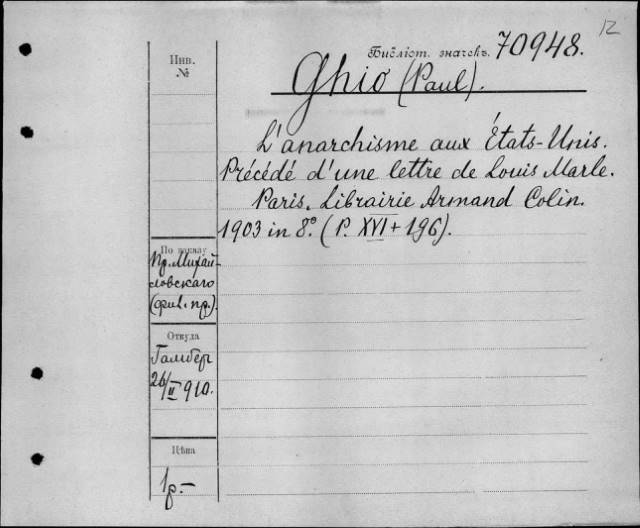 12
Библіот. значекъ. 70948.
Инв.
№
Ghio (Paul).
L'anarchisme aux États-Unis.
Précédé d'une lettre de Louis Marle.
Paris. Librairie Armand Colin.
1903 in 8.° (P. XVI + 196).
По заказу
Пр. Михай-
ловскаго
(фил. пр.).
Откуда
Гамбер
26/II 910.
Цѣна
1р.-